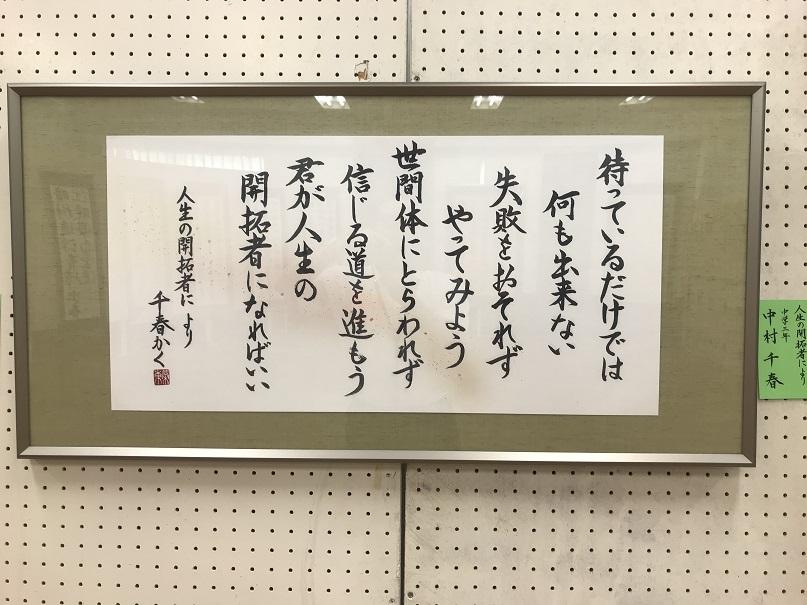 待っているだけでは
何も出来ない
失敗をおそれず
やってみよう
世間体にとらわれず
信じる道を進もう
君が人生の
開拓者になればいい
人生の開拓者に より
千春かく
人生の開拓者により
中学二年
中村千春